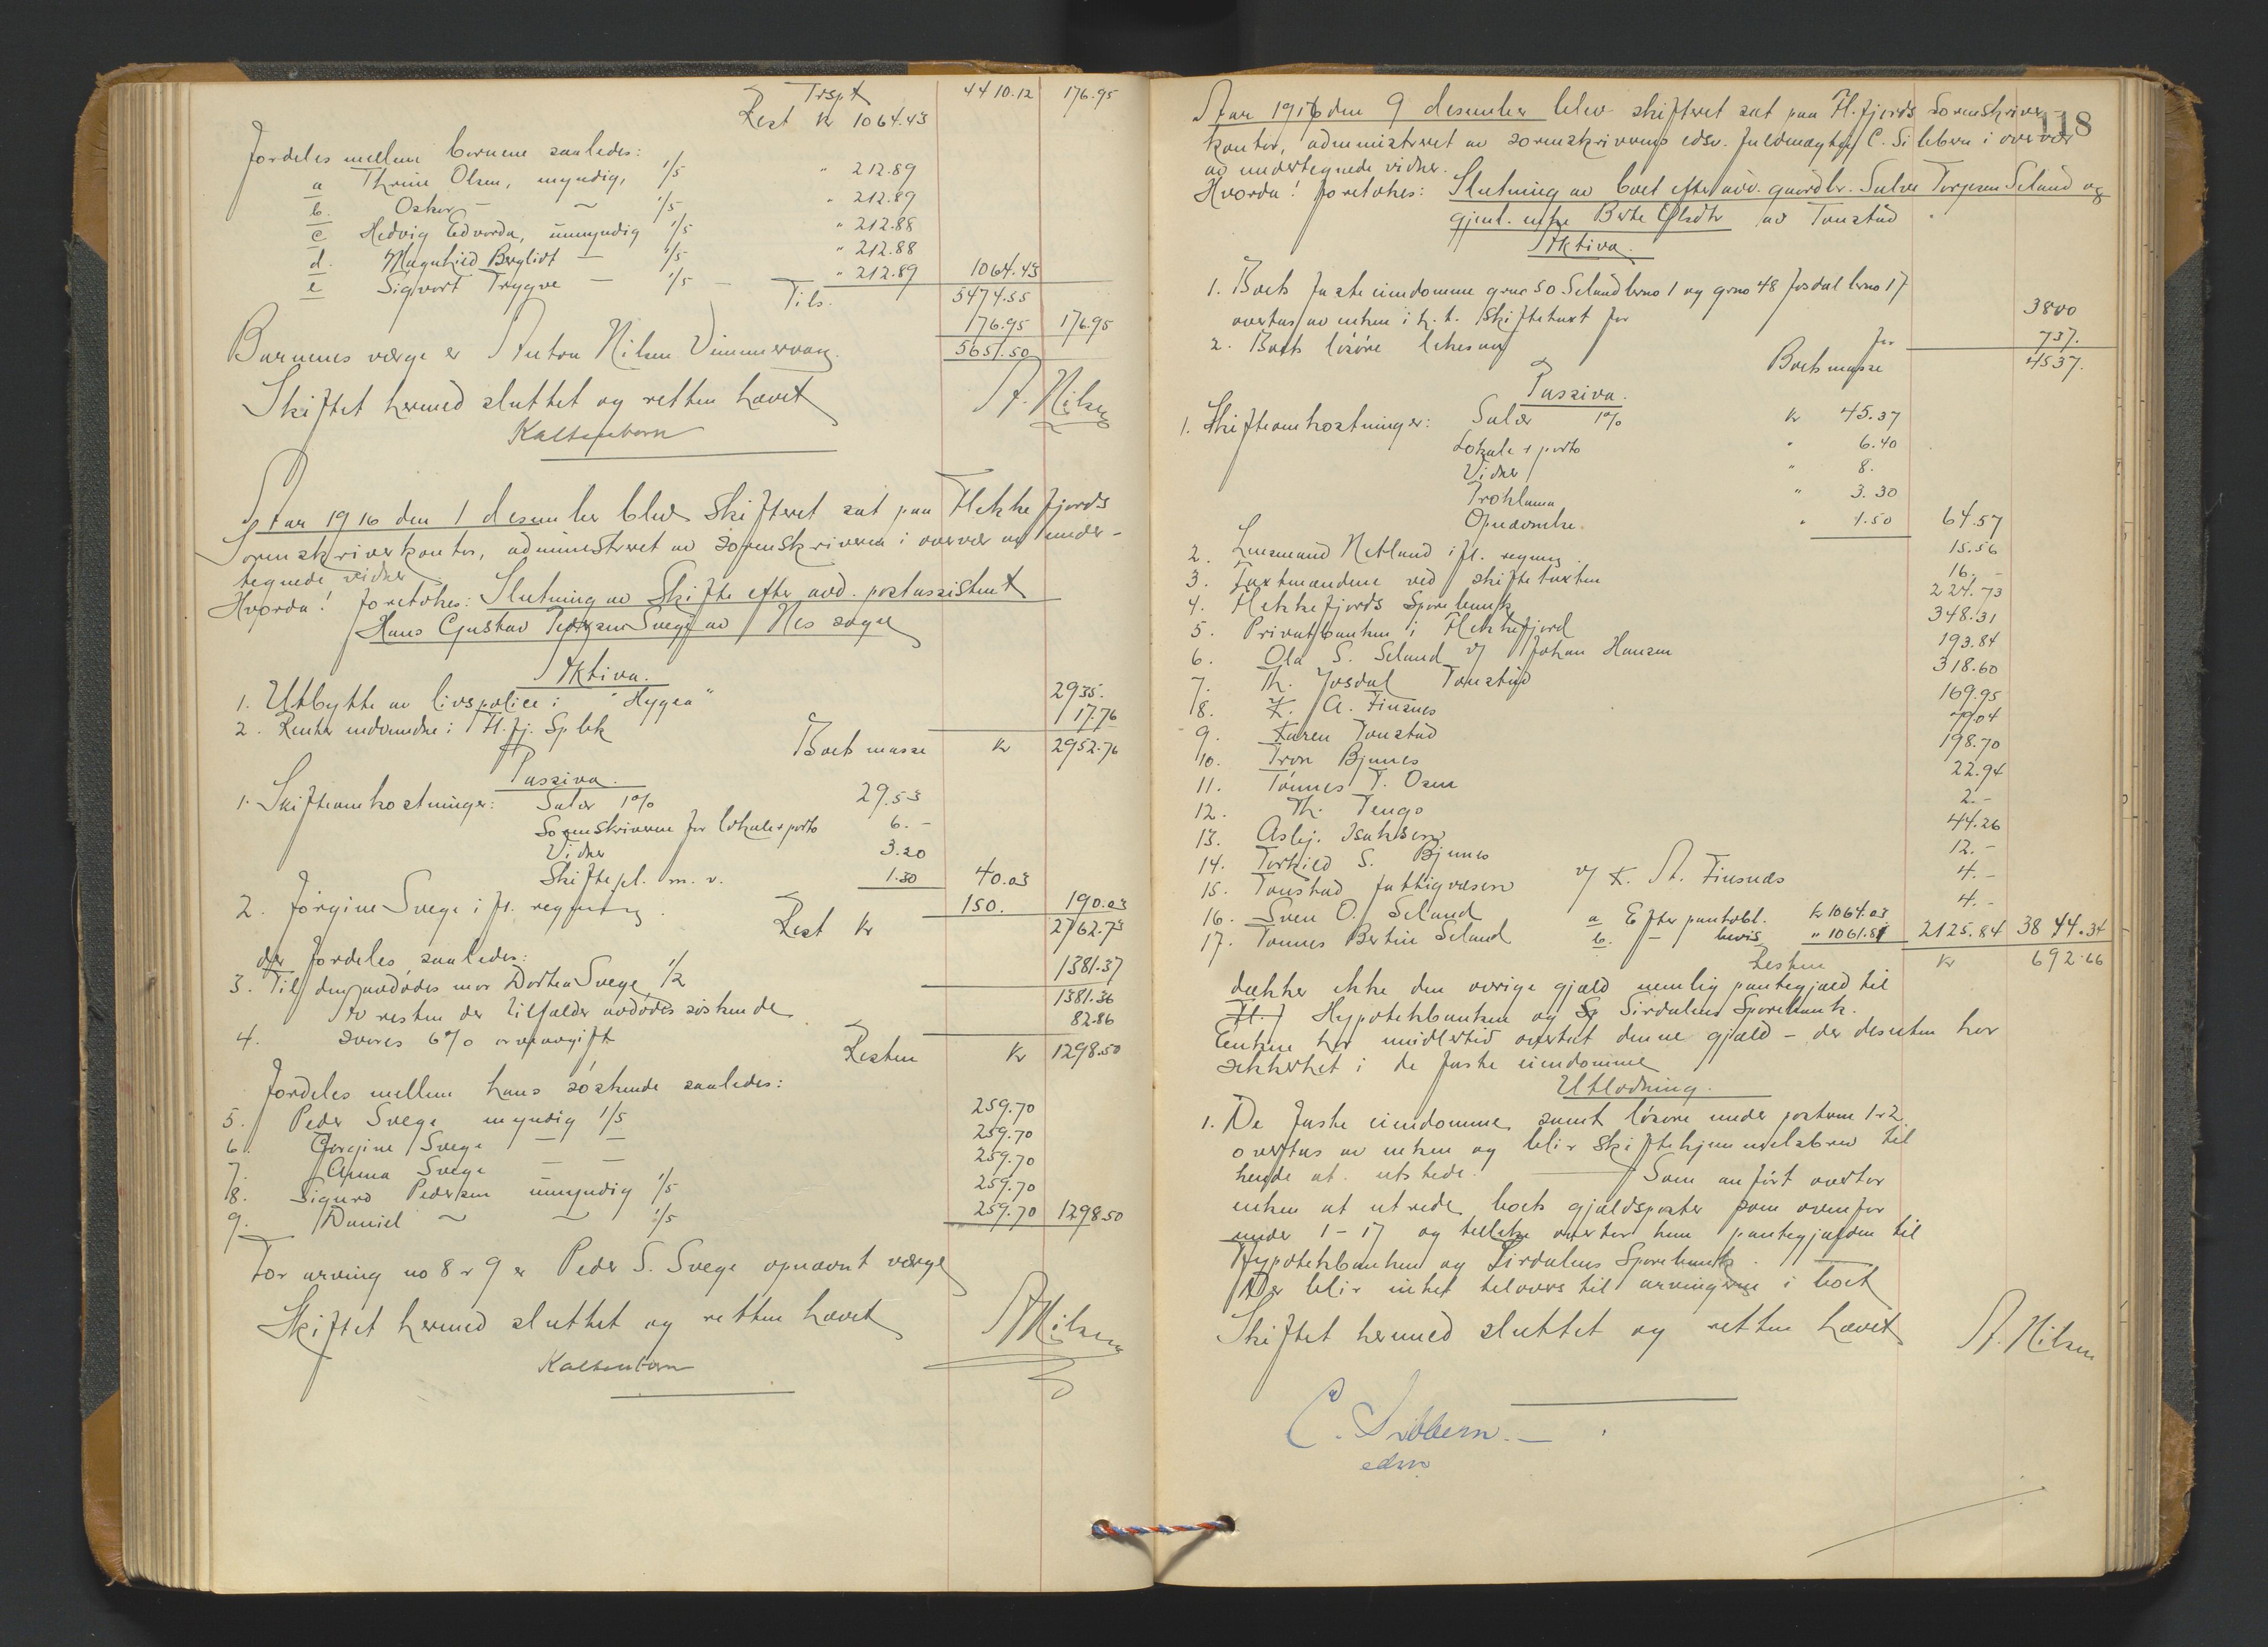 Trspt 4410.12 176.95
Rest kr 1064.43
Fordeles mellem barnene saaledes:
a Thrine Olsen, myndig, 1/5 " 212.89
b. Oskar — ~ 1/5 " 212.89
c Hedvig Edvarda, umyndig 1/5 " 212.88
d. Magnhild Bergliot — 1/5 " 212.88
e Sigvart Trygve — 1/5 — " 212.89 1064.43
Tils. 5474.55
176.95 176.95
Barnenes værge er Anton Nilsen Vimmervang. 5651.50
Skiftet hermed sluttet og retten hævet A. Nilsen
Kaltenborn
Aar 1916 den 1 desember blev skifteret sat paa Flekkefjords
Sorenskriverkontor, administreret av sorenskriveren i overvær av under-
tegnede vidner
Hvorda! foretokes: Slutning av Skifte efter avd. postassistent
Hans Gustav Pedersen Svege av Nes sogn
Aktiva.
1. Utbytte av livspolice i "Hygea" 2935.
2. Renter indvundne i Fl.fj. Sp.bk 17.76
Boets masse kr 2952.76
Passiva.
1. Skifteomkostninger: Salær 1% 29.53
Sorenskriveren for lokale & porto 6.-
Vidner 3.20
Skiftepl. m. v. 1.30 40.03
2. Jørgine Svege i fl. regning. 150. 190.03
Rest kr 2762.73
der fordeles saaledes:
3. Til den avdødes mor Dorthea Svege 1/2 1381.37
1381.36
Av resten der tilfalder avdødes søskende
4. svares 6% arveavgift 82.86
Resten kr 1298.50
Fordeles mellem hans søskende saaledes:
5. Peder Svege myndig 1/5 259.70
6. Gorgine Svege — — 259.70
7. Anna Svege — — 259.70
8. Sigurd Pedersen umyndig 1/5 259.70
9. Daniel ~ ~ 1/5 259.70 1298.50
For arving no 8 & 9 er Peder S. Svege opnævnt værge
Skiftet hermed sluttet og retten hævet A Nilsen
Kaltenborn
118
Aar 1916 den 9 desember blev skifteret sat paa Fl.fjords Sorenskriver-
kontor, administreret av sorenskriverens edsv. fuldmægtig C. Sibbern i overvær
av undertegnede vidner.
Hvorda! foretokes: Slutning av boet efter avd. gaardbr. Salve Torjesen Seland og
gjenl. enke Berte Olsdtr av Tonstad
Aktiva.
1. Boets faste eiendomme gno 50 Seland bno 1 og gno 48 Josdal bno 17
overtas av enken i h. t. skiftetaxt for 3800
2. Boets løsøre likesaa for 737.
Boets masse 4537.
Passiva.
1. Skifteomkostninger: Salær 1% kr 45.37
Lokale & porto " 6.40
Vidner " 8.
Proklama " 3.30
Opnævnelse " 1.50 64.57
2. Lensmand Netland i fl. regning. 15.56
3. Taxtmændene ved skiftetaxten 16.-
4. Flekkefjords Sparebank 224.73
5. Privatbanken i Flekkefjord 348.31
6. Ola S. Seland v/ Johan Hansen 193.84
7. Th. Josdal Tonstad 318.60
8. K. A. Finsnes 169.95
9. Karen Tonstad
10. Tron Bjunes 198.70
11. Tønnes T. Osen 22.94
12. Th. Tengs 2.-
13. Aslej. Isaksen 44.26
14. Torkild S. Bjunes 12.-
15. Tonstad fattigvæsen v/ K. A. Finsnes 4.-
16. Sven O. Seland 4.-
17. Tønnes Bertin Seland a Efter pantobl. kr 1064.03
b. — bevis " 1061.81 2125.84 3844.34
Resten kr 692.66
dækker ikke den øvrige gjæld nemlig pantegjæld til
Hypotekbanken og Sirdalens Sparebank.
Enken har imidlertid overtat denne gjæld – der desuten har
sikkerhet i de faste eiendomme
Utlodning.
1. De faste eiendomme samt løsøre under postene 1 & 2
overtas av enken og blir skiftehjemmelsbrev til
hende at utstede. — Som anført overtar
enken at utrede boets gjældsposter som ovenfor
under 1 – 17 og overtar hun pantegjælden til
Hypotekbanken og Sirdalens Sparebank.
Der blir intet tilovers til arvingerne i boet
Skiftet hermed sluttet og retten hævet A. Nilsen
C. Sibbern. —
edsv.